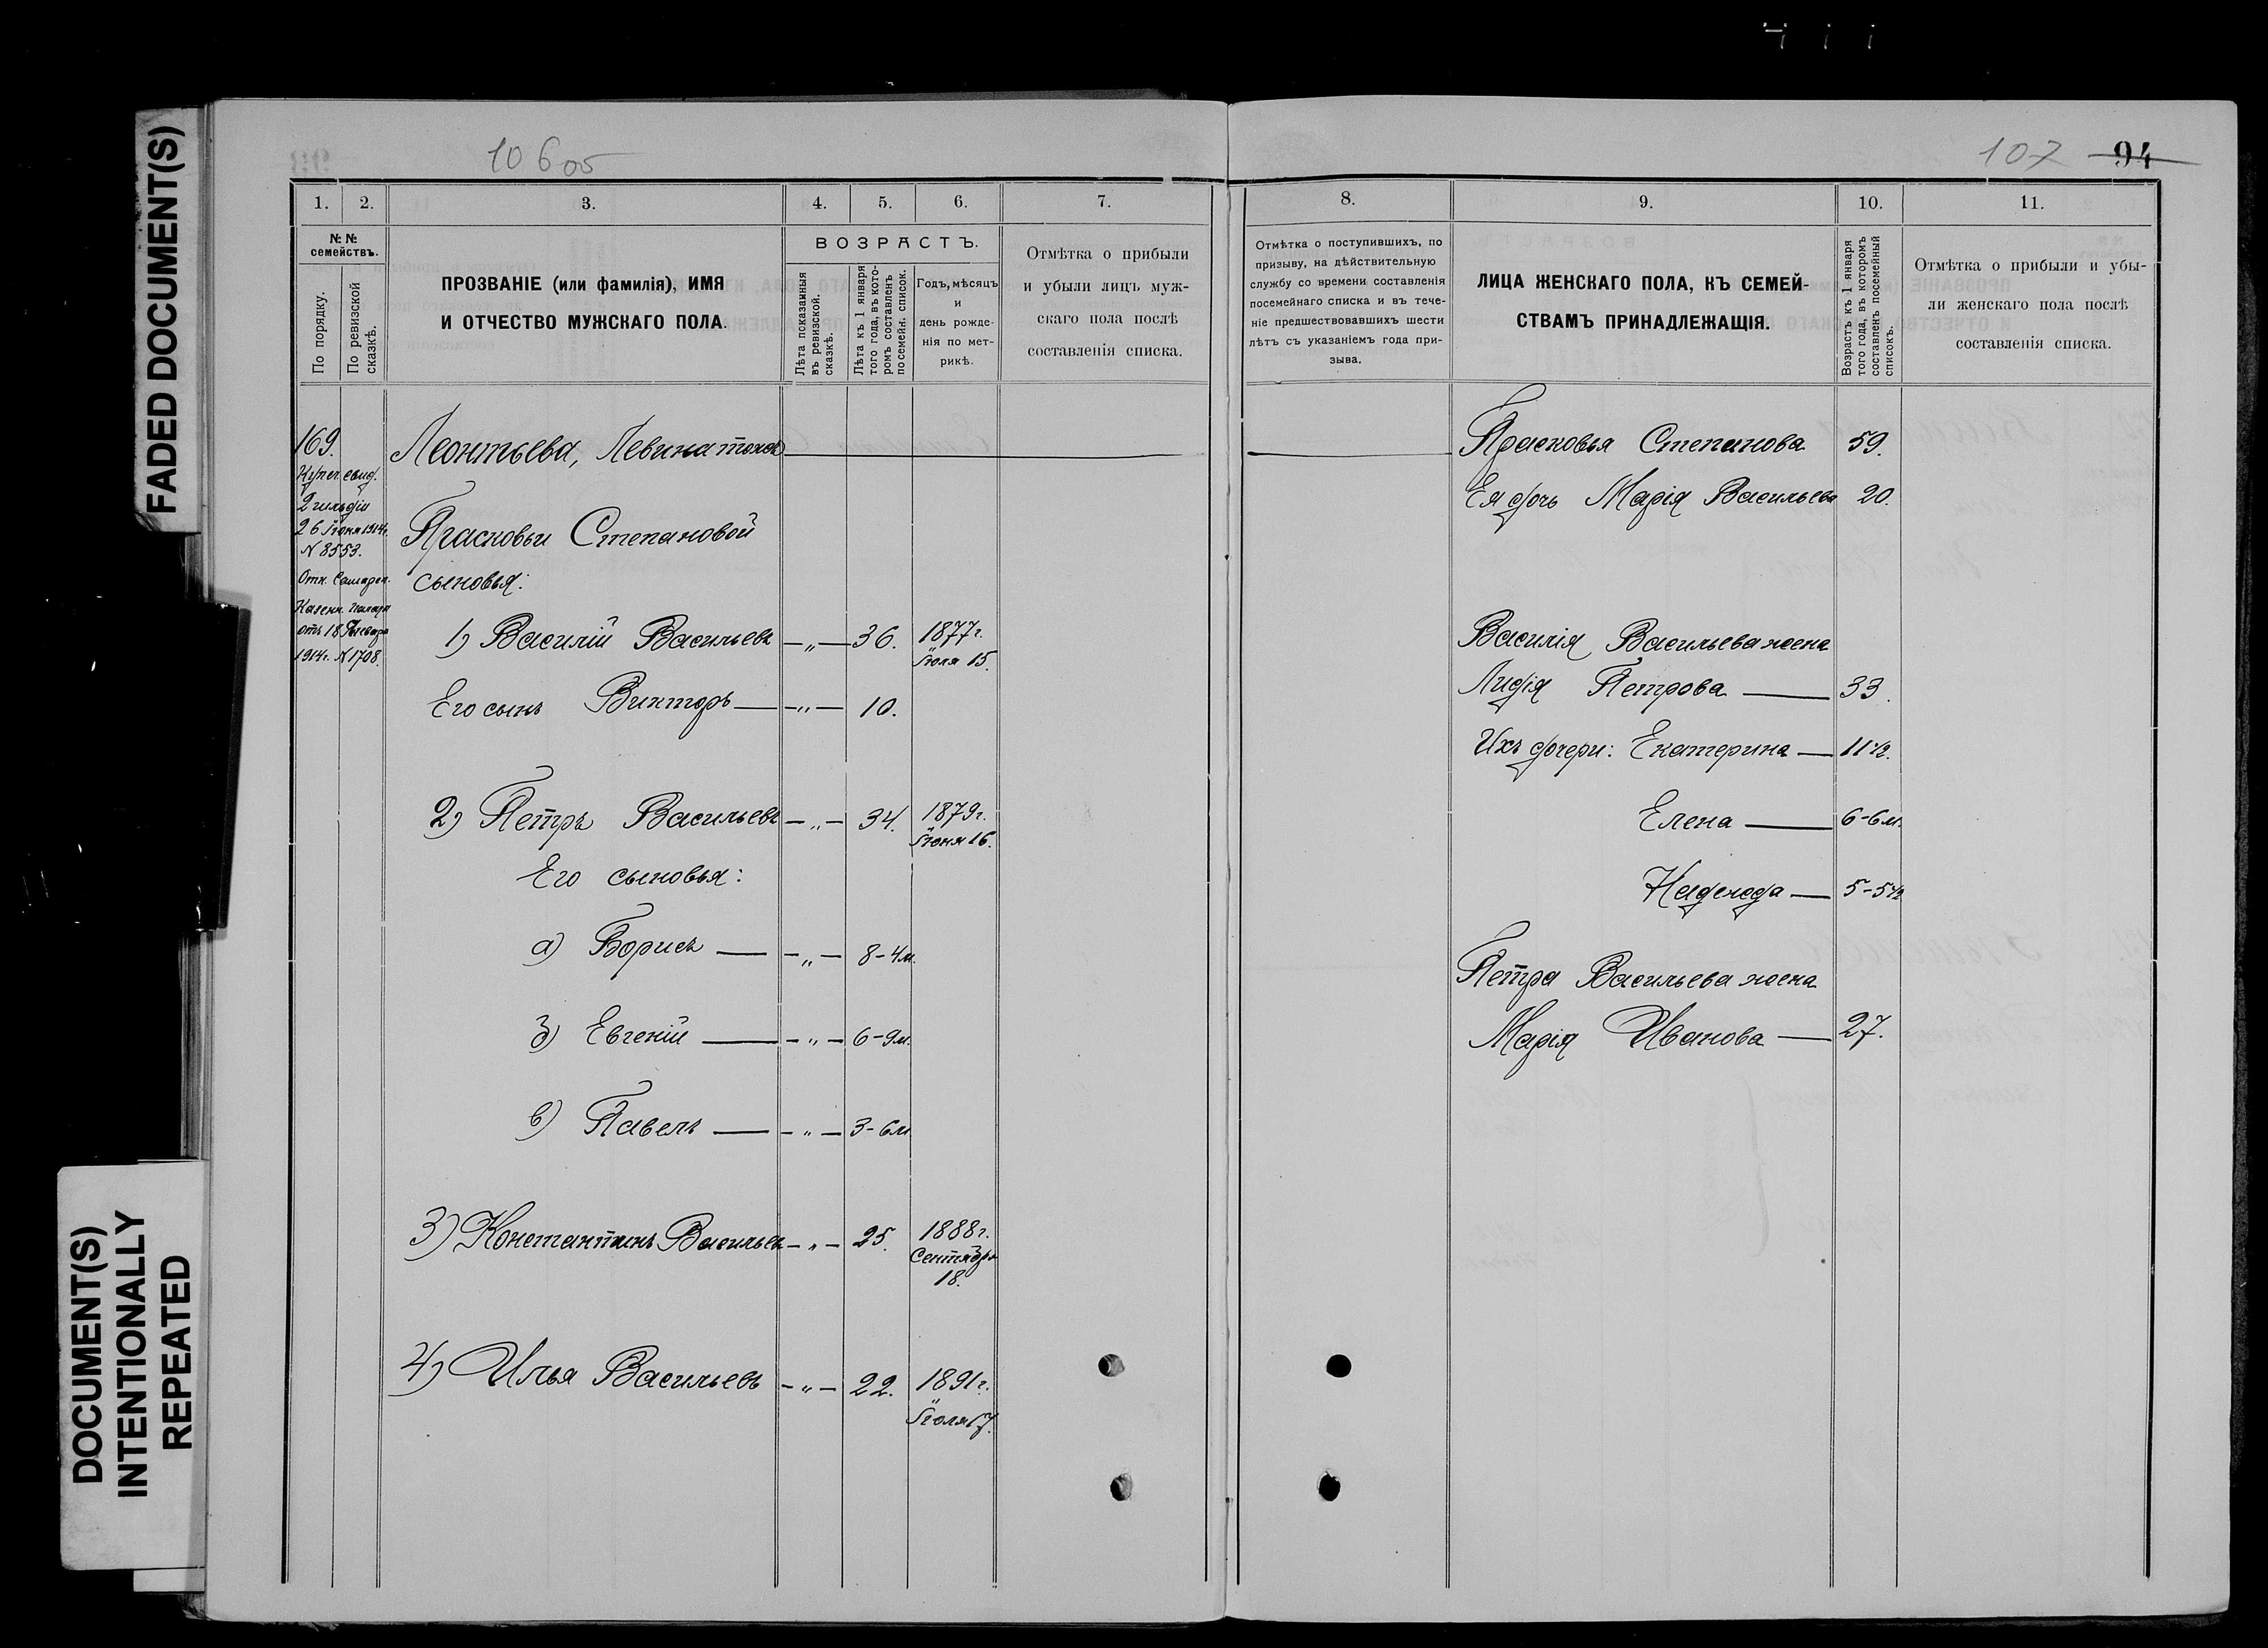 FADED DOCUMENT(S)
DOCUMENT(S)
INTENTIONALLY
REPEATED
10605
1. 2. 3. 4. 5. 6. 7.
№ №
семействъ.
По порядку.
По ревизской
сказкѣ.
ПРОЗВАНІЕ (или фамилія), ИМЯ
И ОТЧЕСТВО МУЖСКАГО ПОЛА.
ВОЗРАСТЪ.
Лѣта показанныя
въ ревизской.
сказкѣ.
Лѣта къ 1 января
того года, въ кото-
ромъ составленъ
посемейн. списокъ.
Годъ, мѣсяцъ
и
день рожде-
нія по мет-
рикѣ.
Отмѣтка о прибыли
и убыли лицъ муж-
скаго пола послѣ
составленія списка.
169.
Купеч. свид.
2 гильдіи
26 Іюня 1914г.
N 8553.
Отн.
Казенн. Палаты
отъ 18 Января
1914г. N 1708.
Леонтьева,
Прасковьи Степановой
сыновья:
1) Василій Васильевъ — „ — 36. 1877г.
Іюля 15.
Его сынъ Викторъ — „ — 10.
2) Петръ Васильевъ — „ — 34. 1879г.
Іюня 16.
Его сыновья:
а) Борисъ — „ — 8-4м.
б) Евгеній — „ — 6-9м.
в) Павелъ — „ — 3-6м
3) Константинъ Васильевъ — „ — 25. 1888г.
Сентября
18.
4) Илья Васильевъ — „ — 22. 1891г.
Іюля 17.
107 94
8. 9. 10. 11.
Отмѣтка о поступившихъ, по
призыву, на дѣйствительную
службу со времени составленія
посемейнаго списка и въ тече-
ніе предшествовавшихъ шести
лѣтъ съ указаніемъ года при-
зыва.
ЛИЦА ЖЕНСКАГО ПОЛА, КЪ СЕМЕЙ-
СТВАМЪ ПРИНАДЛЕЖАЩІЯ.
Возрастъ къ 1 января
того года, въ которомъ
составленъ посемейный
списокъ.
Отмѣтка о прибыли и убы-
ли женскаго пола послѣ
составленія списка.
Прасковья Степанова 59.
Ея дочь Марія Васильева 20.
Василія Васильева жена
Лидія Петрова — 33.
Ихъ дочери: Екатерина — 11½.
Елена — 6-6м.
Надежда — 5-5½
Петра Васильева жена
Марія Иванова — 27.